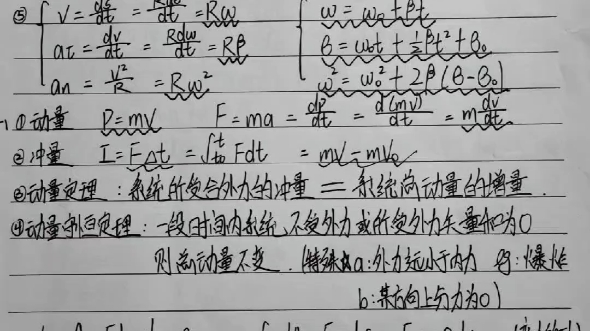 ⑤ V = ds/dt = Rdθ/dt = Rω  ω = ω₀ + βt
aτ = dv/dt = Rdω/dt = Rβ  θ = ω₀t + ½βt² + θ₀
an = V²/R = Rω²  ω² = ω₀² + 2β(θ-θ₀)
①动量 P=mv F=ma = dP/dt = d(mv)/dt = m dv/dt
②冲量 I=F△t = ∫t₀^t Fdt = mv-mv₀
③动量定理：系统所受合外力的冲量 = 系统总动量的增量.
④动量守恒定理：一段时间内系统不受外力或所受外力矢量和为0
则总动量不变.（特殊 a:外力远小于内力 例:爆炸
b:某方向上外力为0）